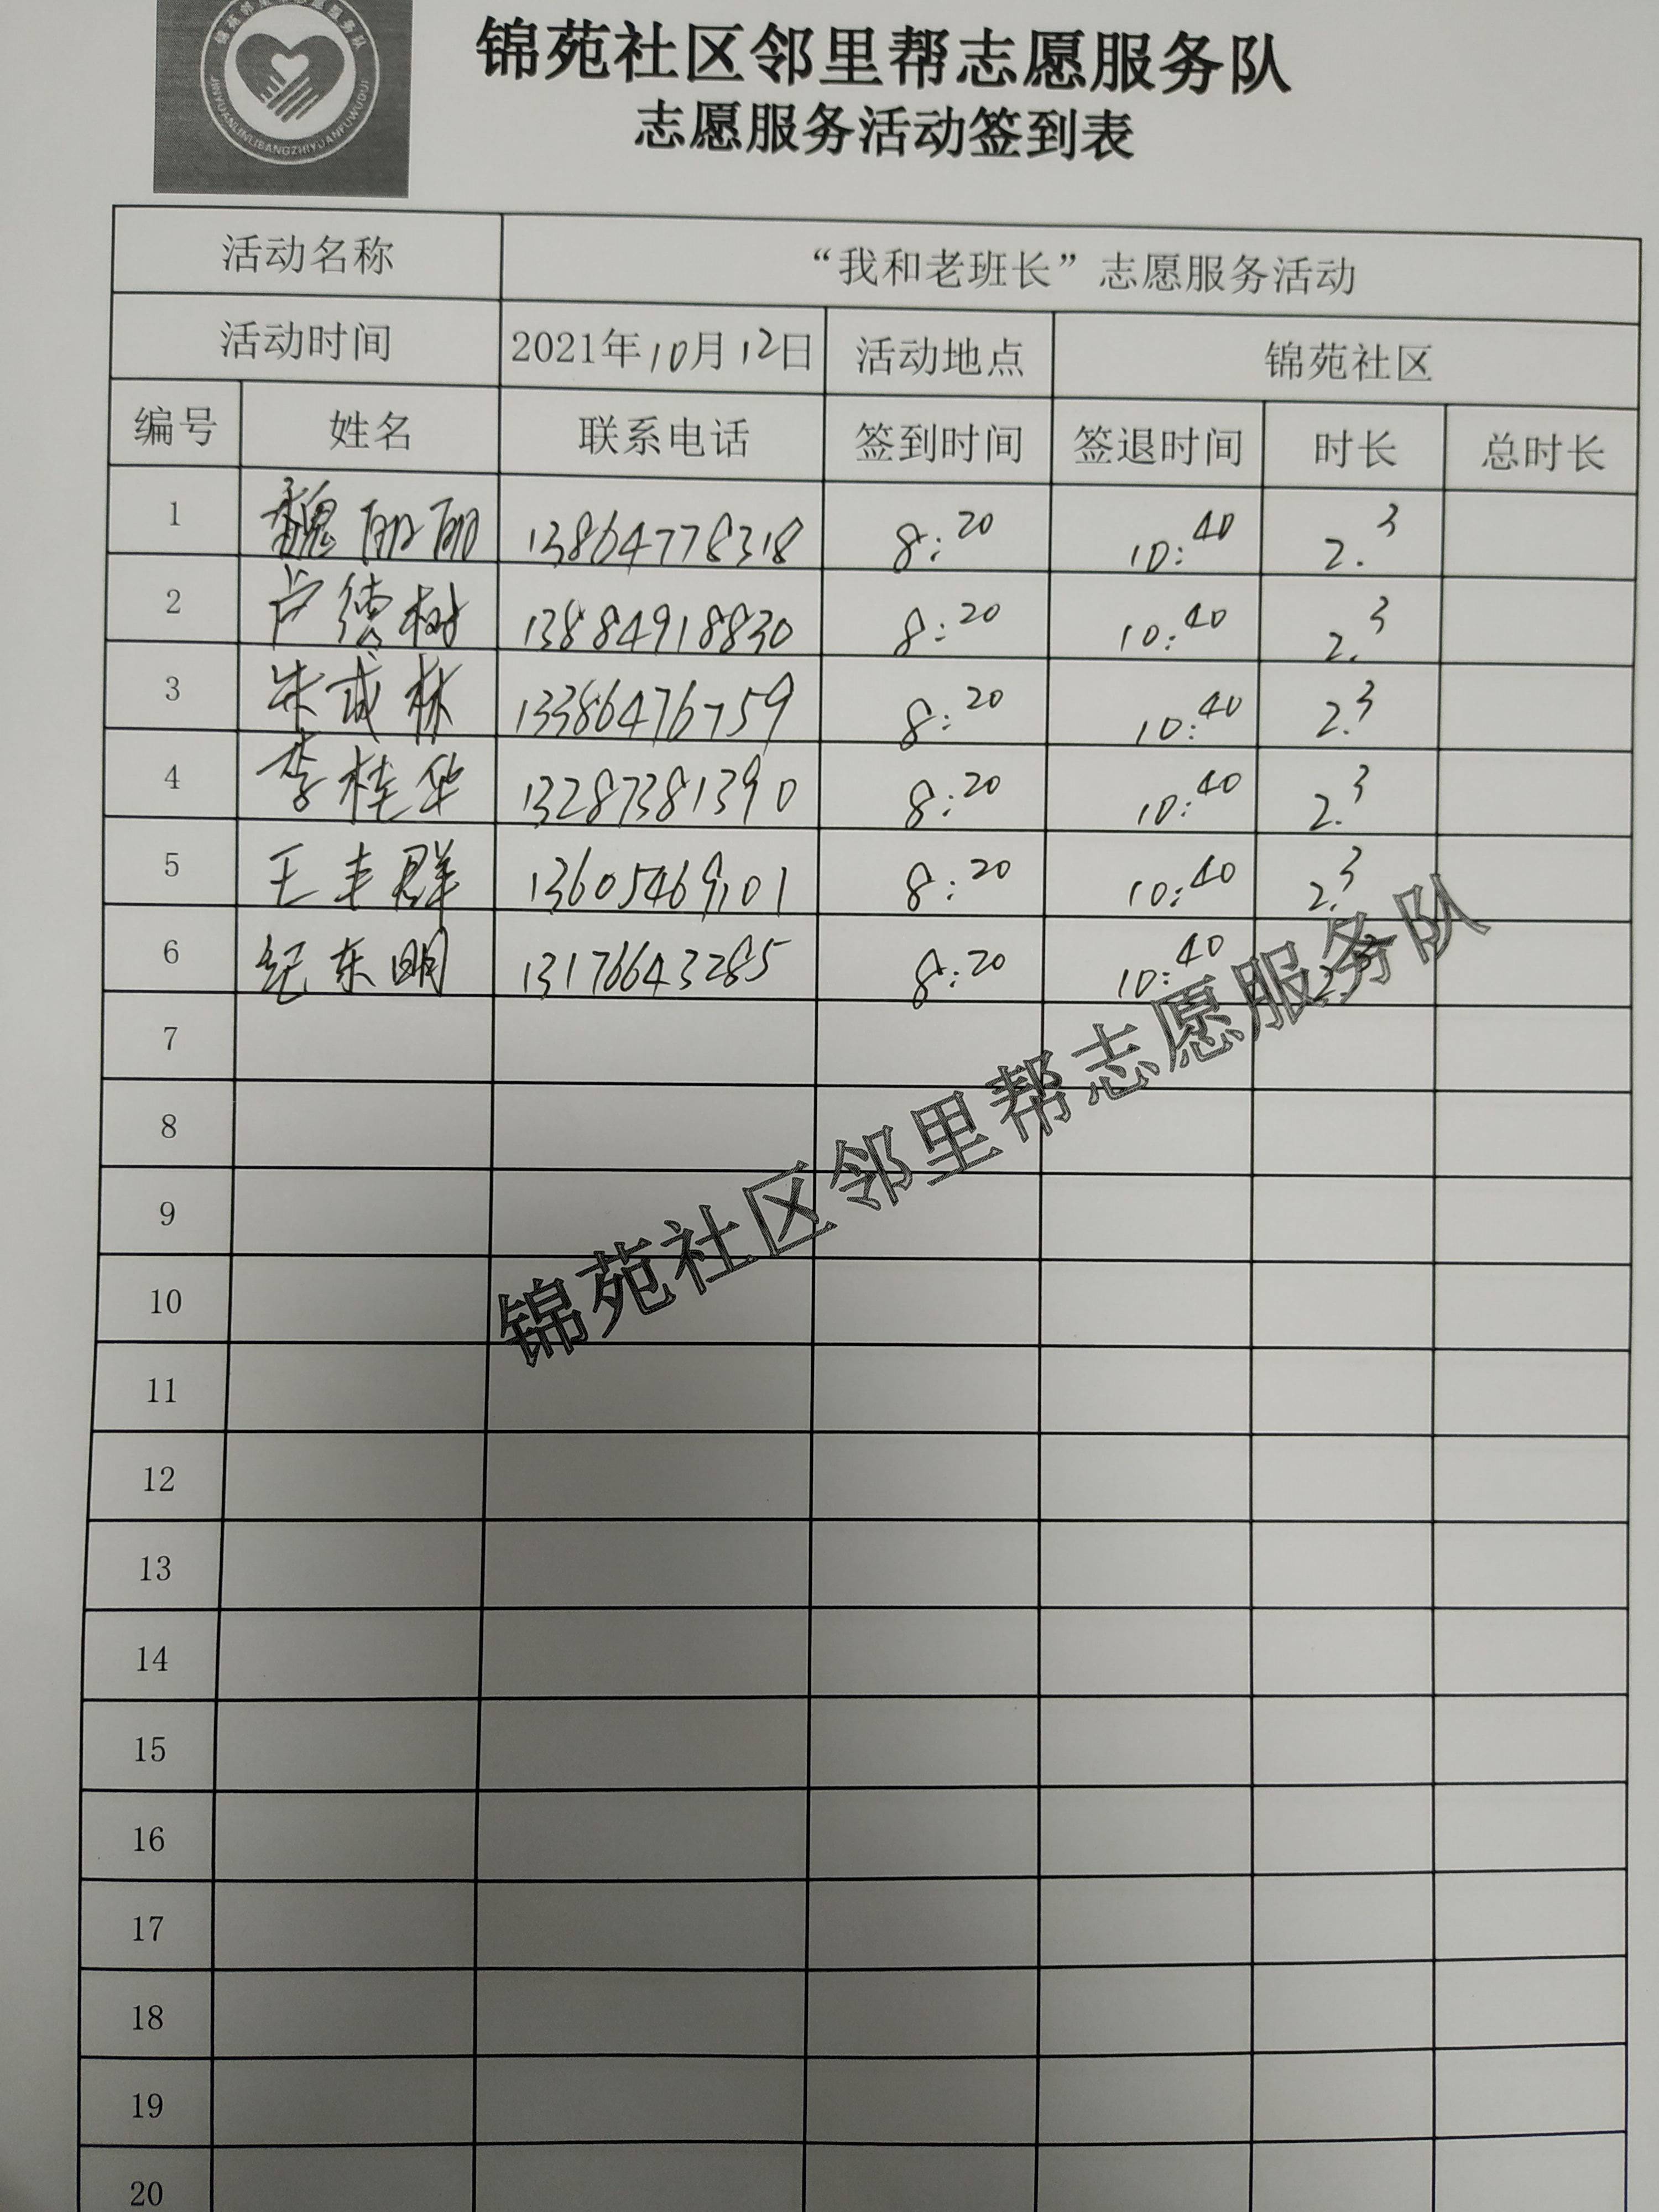 锦苑社区邻里帮志愿服务队
志愿服务活动签到表
JINYUANLINLIBANGZHIYUANFUWUDUI
活动名称 “我和老班长”志愿服务活动
活动时间 2021年10月12日 活动地点 锦苑社区
编号 姓名 联系电话 签到时间 签退时间 时长 总时长
1 魏丽丽 13864778318 8:20 10:40 2.3
2 卢德树 13884918830 8:20 10:40 2.3
3 朱成林 13386476759 8:20 10:40 2.3
4 李桂华 13287381390 8:20 10:40 2.3
5 王丰群 13605469101 8:20 10:40 2.3
6 纪东明 13176643285 8:20 10:40 2.3
7
8
9
10
11
12
13
14
15
16
17
18
19
20
锦苑社区邻里帮志愿服务队